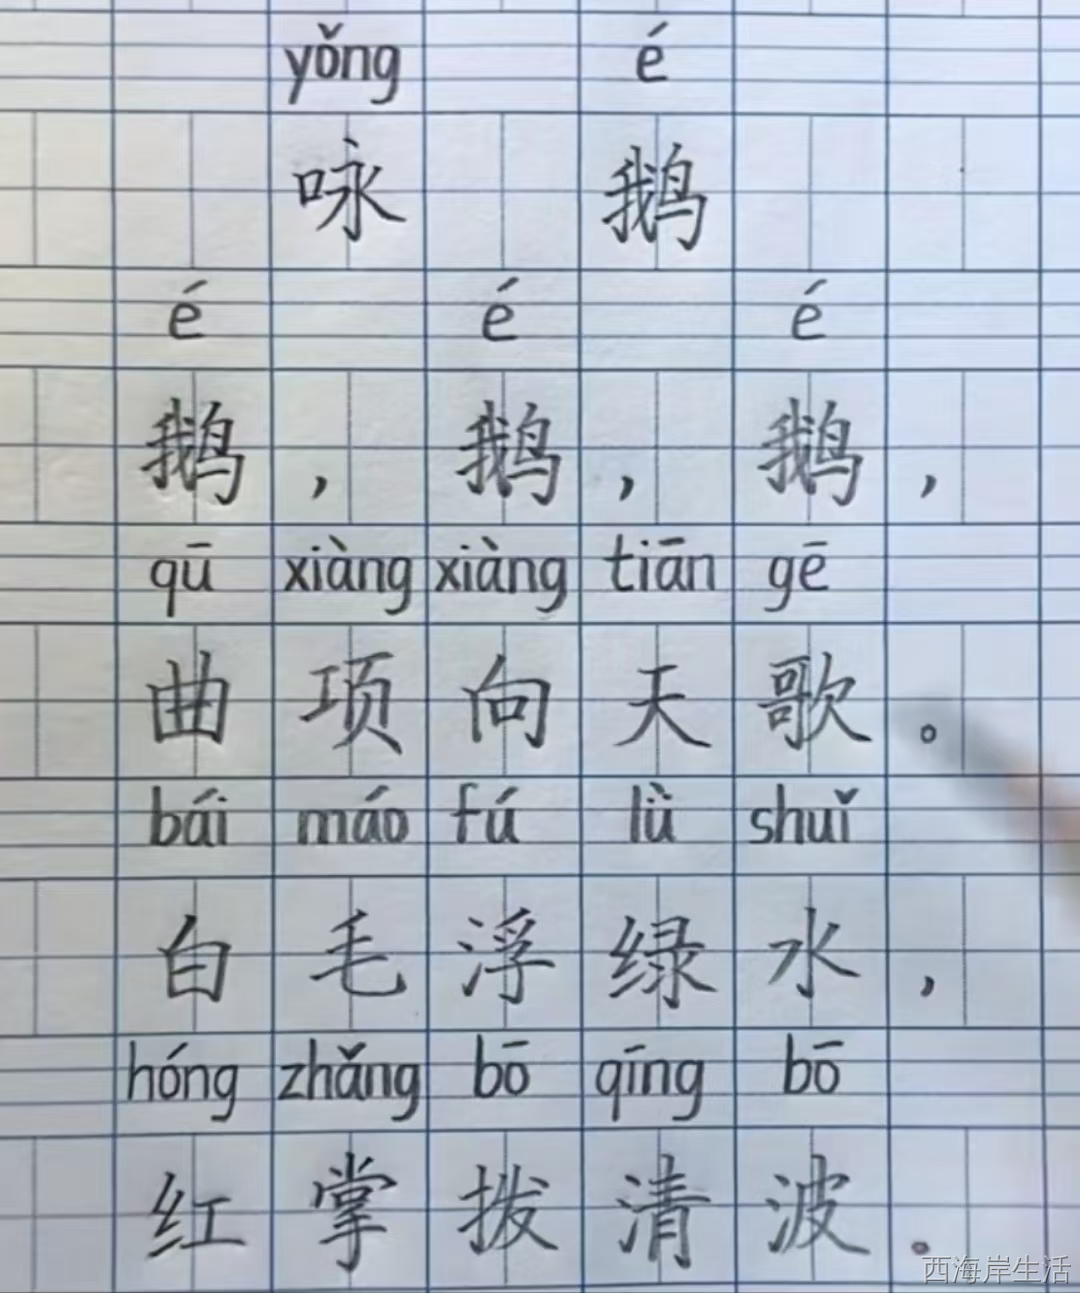 yǒng é
咏 鹅
é é é
鹅，鹅，鹅，
qū xiàng xiàng tiān gē
曲项向天歌。
bái máo fú lǜ shuǐ
白毛浮绿水，
hóng zhǎng bō qīng bō
红掌拨清波。
西海岸生活